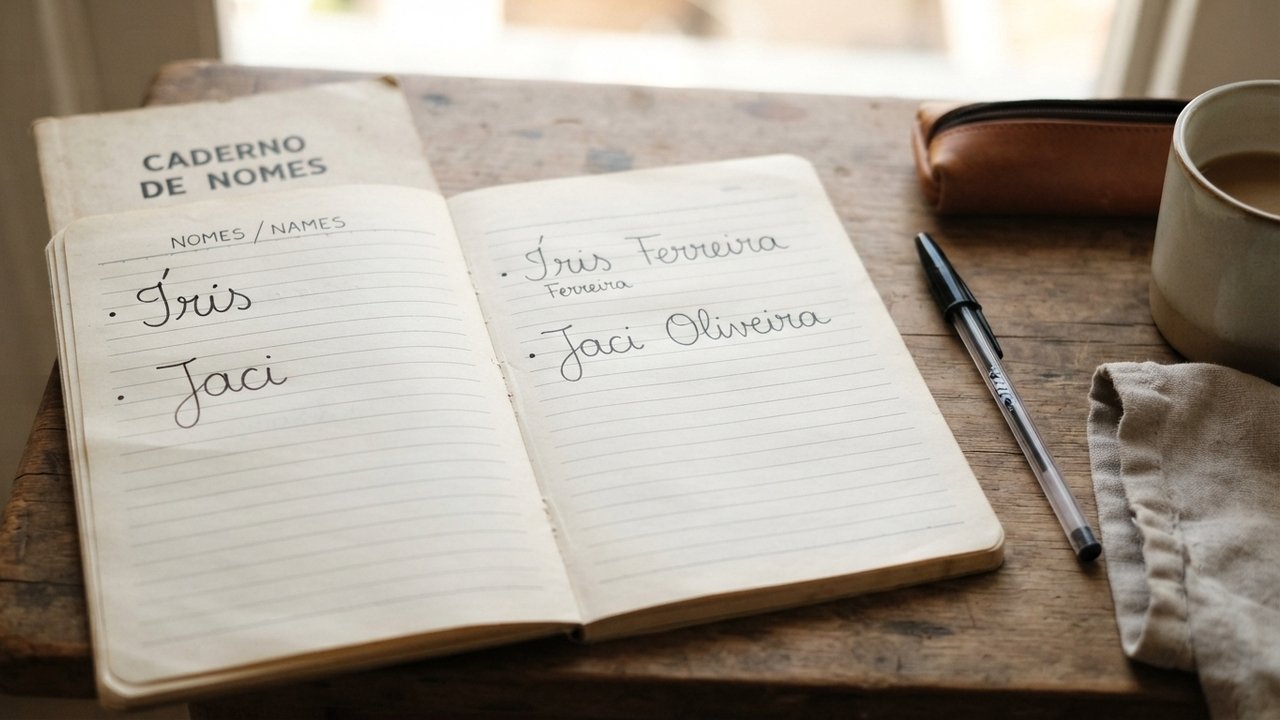 CADERNO
DE NOMES
NOMES / NAMES
• Íris
• Jaci
• Íris Ferreira
Ferreira
• Jaci Oliveira